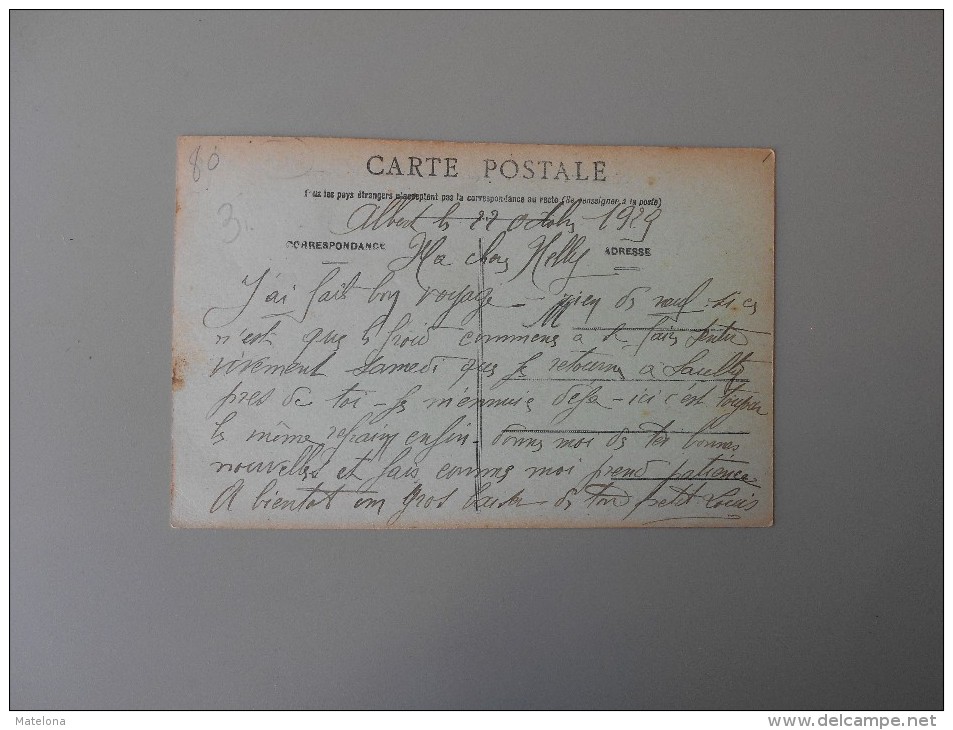 80
CARTE POSTALE
Tous les pays étrangers n'acceptent pas la correspondance au recto (Se renseigner à la poste)
3.
Albert le 22 octobre 1929
CORRESPONDANCE
ADRESSE
Ma chere Nelly
J'ai fait bon voyage - rien de neuf si ce
n'est que le froid commence a se faire sentir
vivement Samedi que je retourne a Saulty
pres de toi - Je m'ennuie deja - ici c'est toujour
le même refrain enfin - donne moi de tes bonnes
nouvelles et fais comme moi prend patience
A bientot un gros baiser de ton petit Louis
Matelona
www.delcampe.net